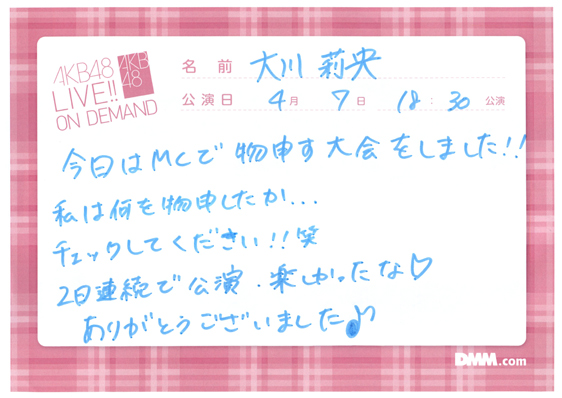 AKB48
LIVE!!
ON DEMAND
AKB
48
名前 大川 莉央
公演日 4月 7日 18:30 公演
今日はMCで物申す大会をしました!!
私は何を物申したか...
チェックしてください!!笑
2日連続で公演、楽しかったな♡
ありがとうございました♪
DMM.com